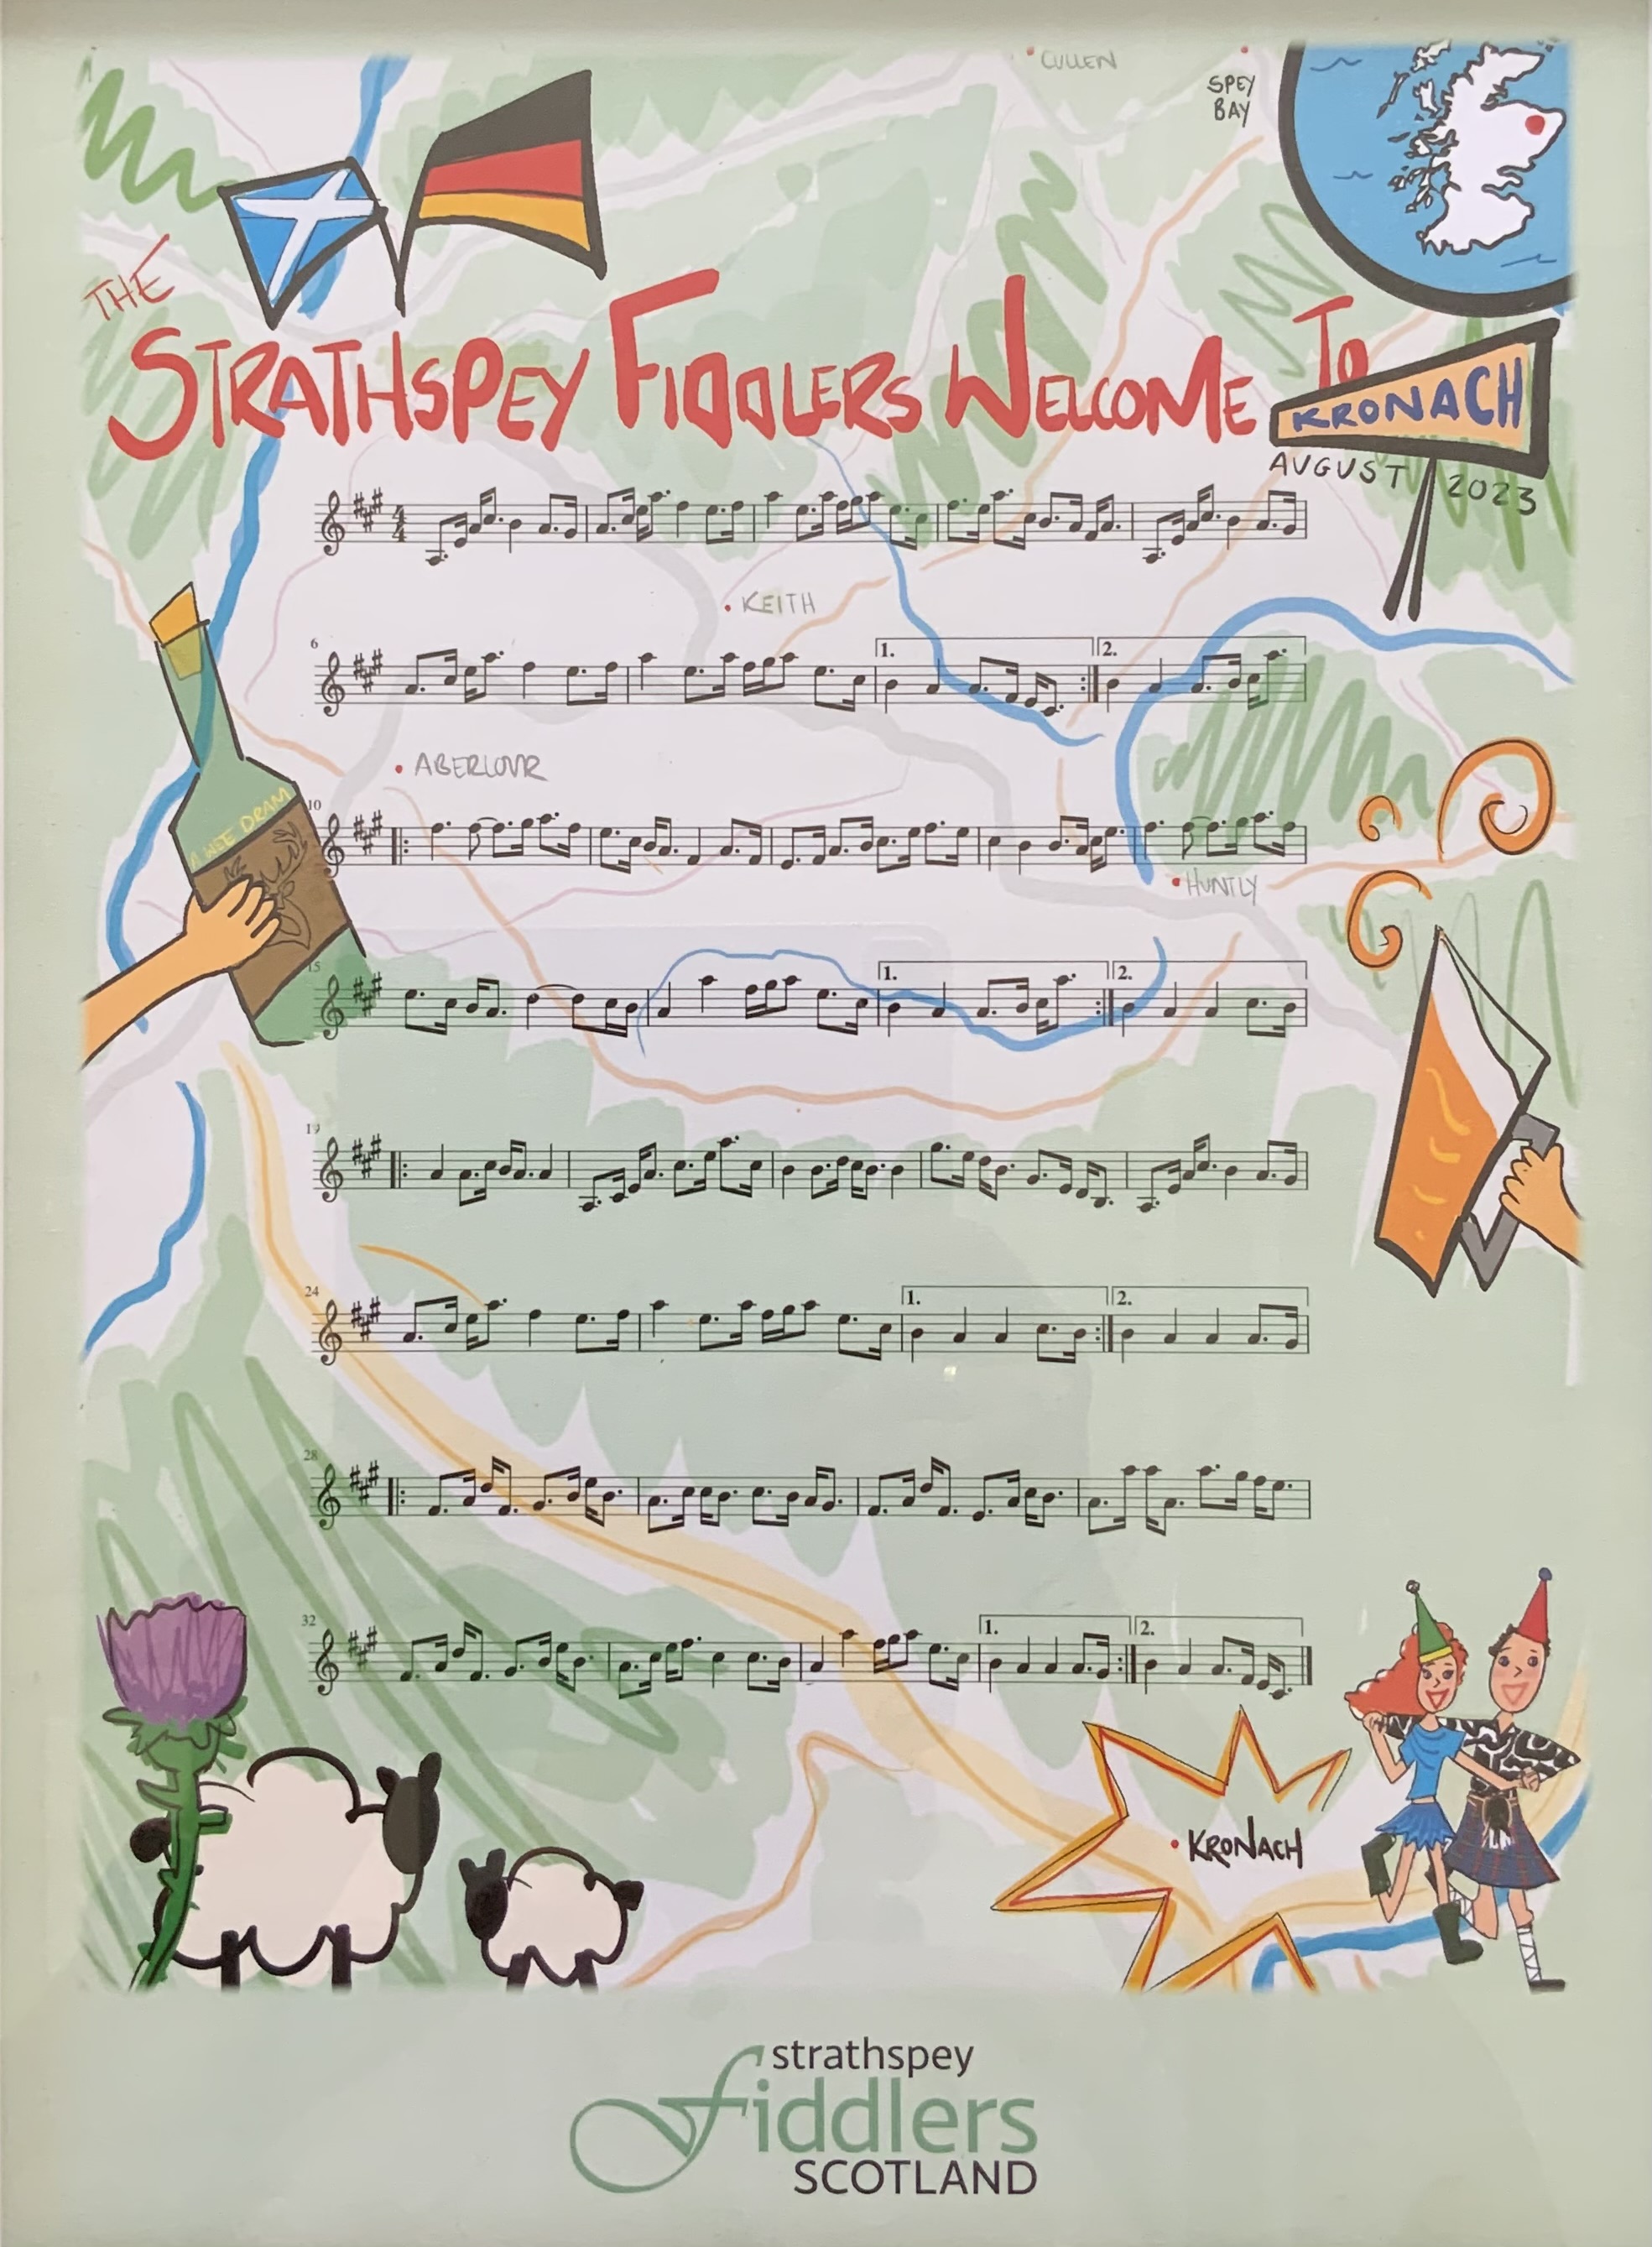 CULLEN
SPEY
BAY
THE
STRATHSPEY FIDDLERS WELCOME TO
KRONACH
AUGUST 2023
4
4
KEITH
6
1.
2.
ABERLOUR
A WEE DRAM
10
HUNTLY
15
1.
2.
19
24
1.
2.
28
32
1.
2.
KRONACH
strathspey
fiddlers
SCOTLAND